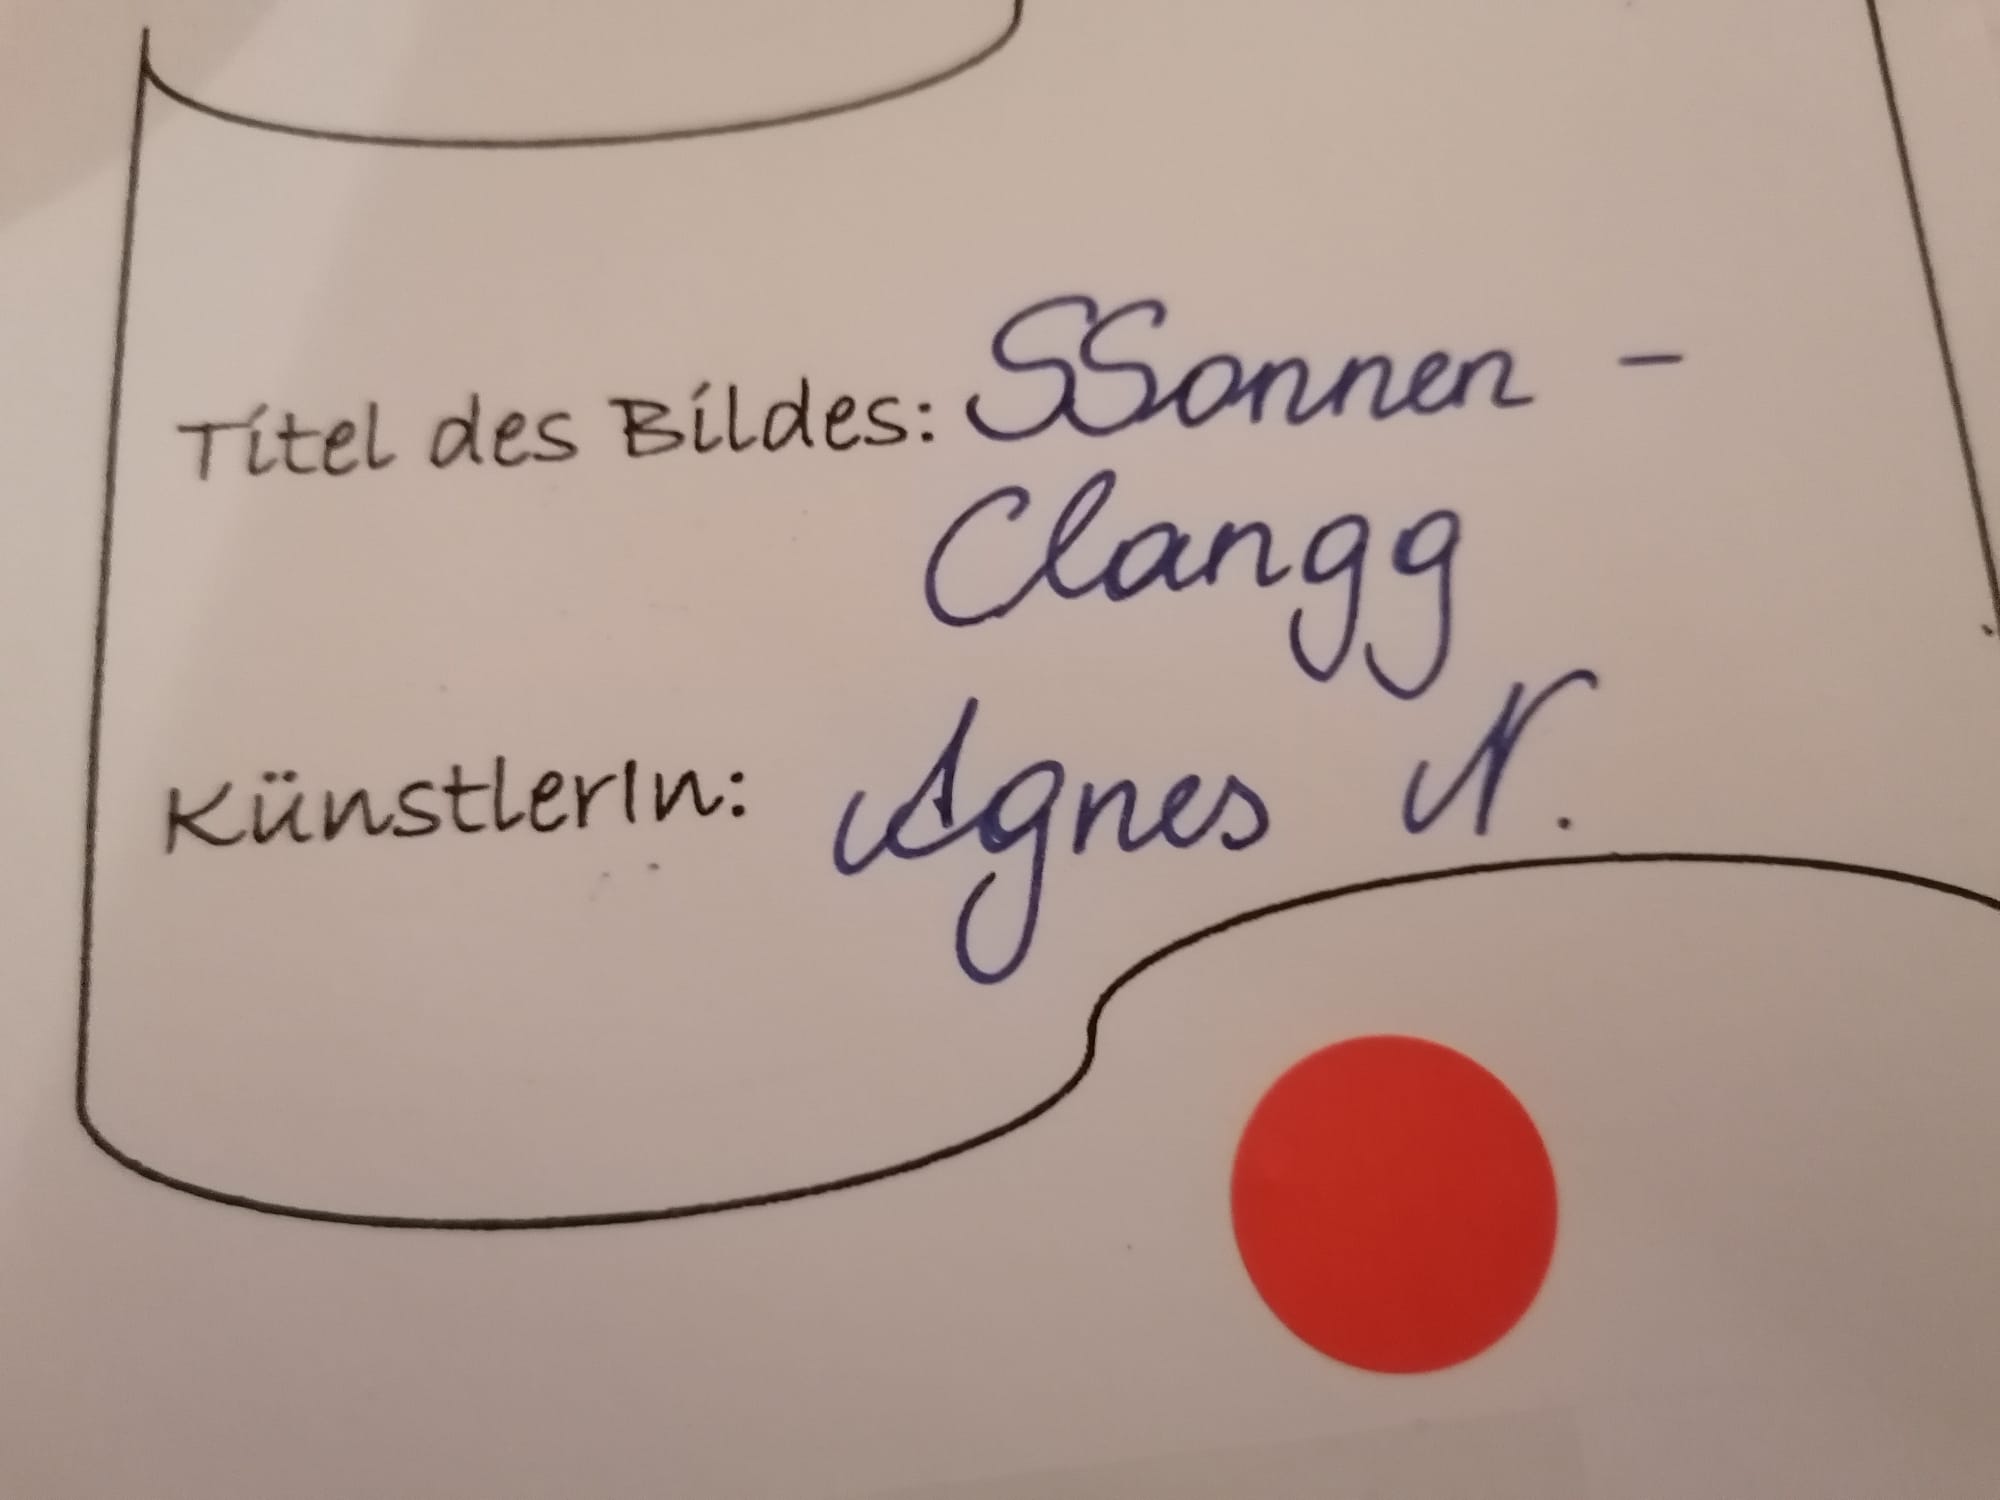 Titel des Bildes: SSonnen -
Clangg
KünstlerIn: Agnes N.